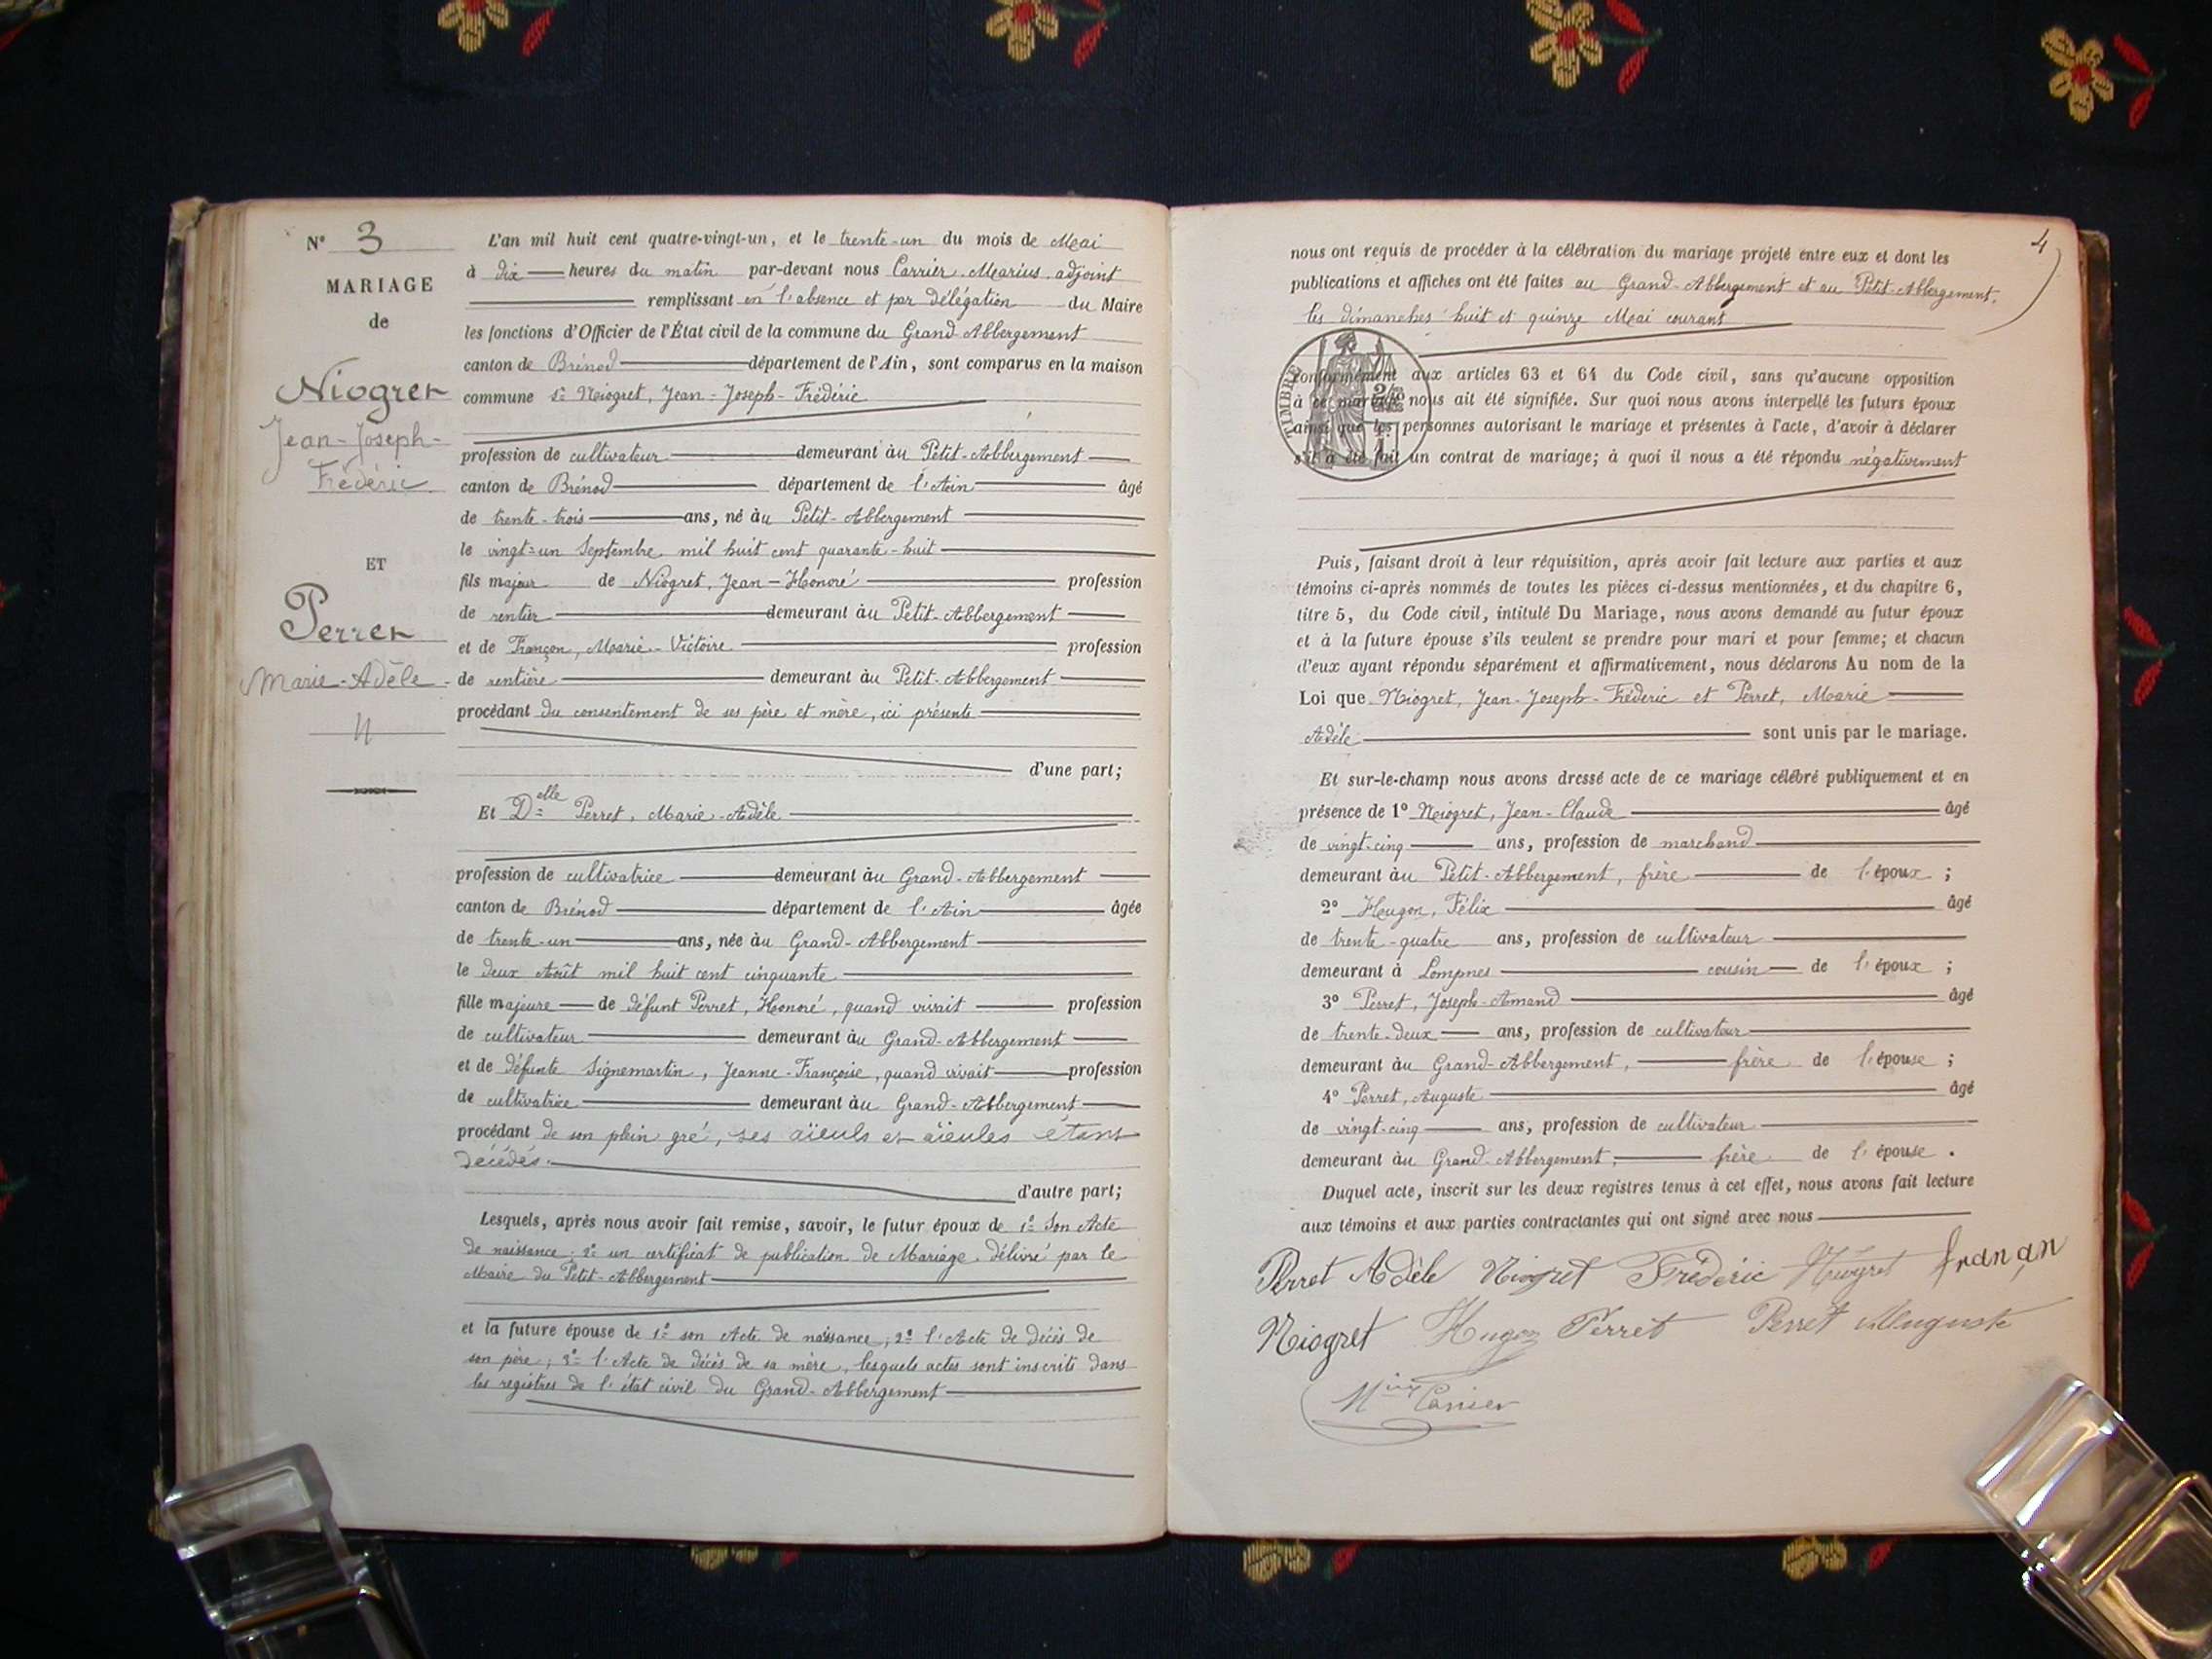 N° 3
MARIAGE
de
Niogret
Jean-Joseph-
Frédéric
ET
Perret
Marie-Adèle
L'an mil huit cent quatre-vingt-un, et le trente-un du mois de Mai
à dix heures du matin par-devant nous Carrier Marius adjoint
remplissant en l'absence et par délégation du Maire
les fonctions d'Officier de l'État civil de la commune du Grand-Abbergement
canton de Brénod département de l'Ain, sont comparus en la maison
commune Sr Niogret, Jean-Joseph-Frédéric
profession de cultivateur demeurant au Petit-Abbergement
canton de Brénod département de l'Ain âgé
de trente-trois ans, né au Petit-Abbergement
le vingt-un Septembre mil huit cent quarante-huit
fils majeur de Niogret, Jean-Honoré profession
de rentier demeurant au Petit-Abbergement
et de Françon, Marie-Victoire profession
de rentière demeurant au Petit-Abbergement
procédant du consentement de ses père et mère, ici présents
d'une part;
Et Delle Perret, Marie-Adèle
profession de cultivatrice demeurant au Grand-Abbergement
canton de Brénod département de l'Ain âgée
de trente-un ans, née au Grand-Abbergement
le deux Août mil huit cent cinquante
fille majeure de défunt Perret, Honoré, quand vivait profession
de cultivateur demeurant au Grand-Abbergement
et de défunte Signemartin, Jeanne-Françoise, quand vivait profession
de cultivatrice demeurant au Grand-Abbergement
procédant de son plein gré, ses aïeuls et aïeules étant
décédés.
d'autre part;
Lesquels, après nous avoir fait remise, savoir, le futur époux de 1° Son Acte
de naissance; 2° un certificat de publication de Mariage délivré par le
Maire du Petit-Abbergement
et la future épouse de 1° son Acte de naissance; 2° l'Acte de décès de
son père; 3° l'Acte de décès de sa mère, lesquels actes sont inscrits dans
les registres de l'état civil du Grand-Abbergement
4
nous ont requis de procéder à la célébration du mariage projeté entre eux et dont les
publications et affiches ont été faites au Grand-Abbergement et au Petit-Abbergement,
les dimanches huit et quinze Mai courant
TIMBRE
conformément aux articles 63 et 64 du Code civil, sans qu'aucune opposition
à ce mariage nous ait été signifiée. Sur quoi nous avons interpellé les futurs époux
ainsi que les personnes autorisant le mariage et présentes à l'acte, d'avoir à déclarer
s'il a été fait un contrat de mariage; à quoi il nous a été répondu négativement
Puis, faisant droit à leur réquisition, après avoir fait lecture aux parties et aux
témoins ci-après nommés de toutes les pièces ci-dessus mentionnées, et du chapitre 6,
titre 5, du Code civil, intitulé Du Mariage, nous avons demandé au futur époux
et à la future épouse s'ils veulent se prendre pour mari et pour femme; et chacun
d'eux ayant répondu séparément et affirmativement, nous déclarons Au nom de la
Loi que Niogret, Jean-Joseph-Fréderic et Perret, Marie
Adèle sont unis par le mariage.
Et sur-le-champ nous avons dressé acte de ce mariage célébré publiquement et en
présence de 1° Niogret, Jean-Claude âgé
de vingt-cinq ans, profession de marchand
demeurant au Petit-Abbergement, frère de l'époux ;
2° Hugon, Félix âgé
de trente-quatre ans, profession de cultivateur
demeurant à Lompnes cousin de l'époux ;
3° Perret, Joseph-Amand âgé
de trente-deux ans, profession de cultivateur
demeurant au Grand-Abbergement, frère de l'épouse ;
4° Perret, Auguste âgé
de vingt-cinq ans, profession de cultivateur
demeurant au Grand-Abbergement, frère de l'épouse .
Duquel acte, inscrit sur les deux registres tenus à cet effet, nous avons fait lecture
aux témoins et aux parties contractantes qui ont signé avec nous
Perret Adèle Niogret Frédéric Niogret françan
Niogret Hugon Perret Perret Auguste
Mius Carrier